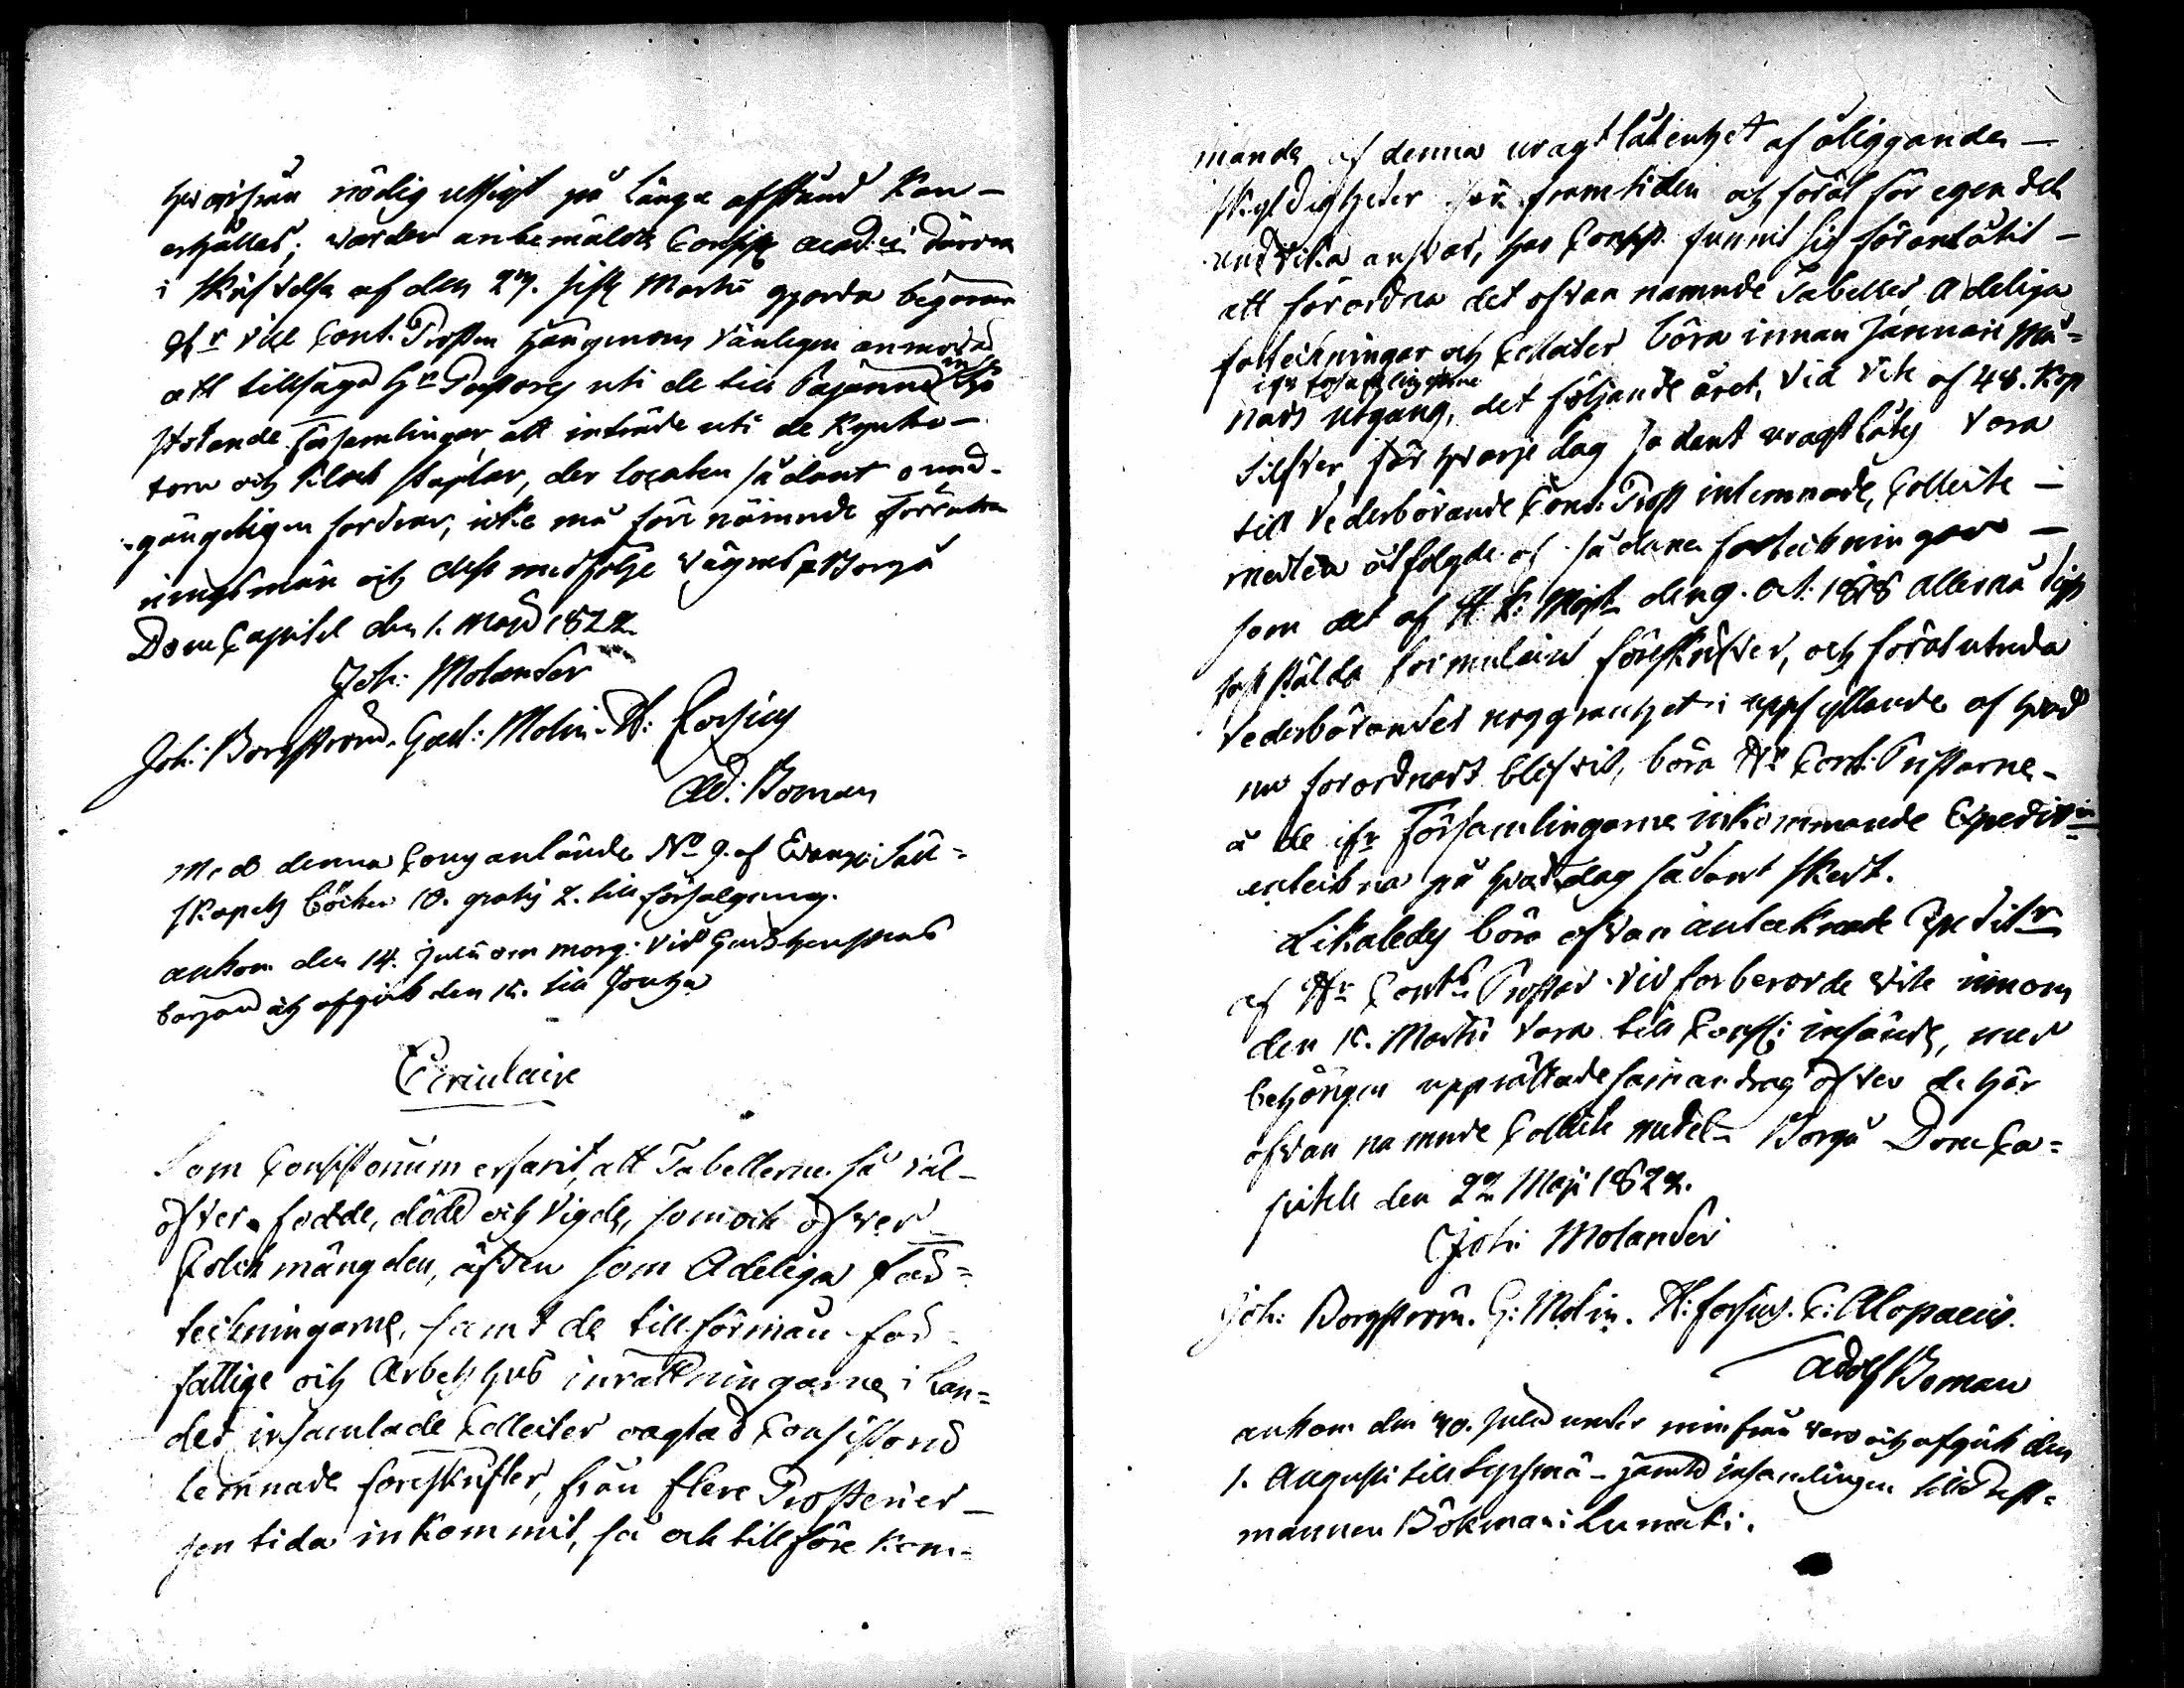 hvarifrån nödig utsigt på långa afstånd kan -
erhålles; warder anbemälde Consist: acad: i därom
i skrifvelse af den 27. sistl Martii gjorda begäran
Hr vice Cont. Prosten härigenom vänligen anmodad
att tillsäga Hrr Pastores uti de till Pajanne
stötande Församlingar, att inträde uti de Kyrko-
torn och Klock staplar, der localen sådant ound-
gängeligen fordrar, icke må före nämnde Förrättn
ningsman och dess medfölje vägras. Borgå
Dom Capitel den 1. Maji 1822.
Joh: Molander
Joh: Borgström. Gust: Molin. H: Forsius
Ad: Boman
Med denna Couv anlände No 9. af Evang: Säll=
skapets böcker 10. gratis 2. till försäljning.
ankom den 14. Julii om morg: vid Gudstjenstens
början och afgick den 15. till Joutza
Circulaire
Som Consistorium erfarit, att Tabellerne så väl -
öfver födde, döde och vigde, som ock öfver
Folck mängden, äfven som Adeliga För=
teckningarne, samt de till förmån för
fattige och Arbetshus inrättningarne i Lan=
det insamlade Collecter oagtad Consistorii
lemnade föreskrifter, från flere Prosterier -
sen tida inkommit, så och till före kom-
mande af denna uragtlåtenhet af åliggande -
skyldigheter för framtiden och förat för egen del
undvika ansvar, har Consist. funnit sig föranlåtit -
att förordna det ofvan nämnde Tabeller Adeliga
förteckningar och Collecter böra innan Januarii Må=
ifrn församlingarne
nads utgång, det följande året, vid vite af 48. Kop
silfver för hvarje dag sådant uragtlåtes vara
till vederbörande Cont. Prost inlemnade, Collecte -
medlen åtfölgde af sådane förteckningar -
som det af H. K: Majt den 9. Oct. 1818 allernådigst
fastställda formulairet föreskrifver, och förat utreda
vederbörandes noggranhet i uppfyllande af hvad
nu förordnadt blifvit, böra Hrr Cont: Prostarne -
å de ifn Församlingarne inkommande Expeditr
anteckna på hvad dag sådant skedt.
Likaledes böra ofvan antecknade Expeditr
af Hrr Contr Prostar vid förberörde vite innom
den 15. Martii vara till Consist: insände, med
behörigen upprättade samandrag öfver de här
ofvan nämnde Collecte medel. Borgå Dom Ca=
pitel den 22 Maji 1822.
Joh: Molander
Joh: Borgström. G: Molin. H: Forsius. C: Alopaeus.
Adolf Boman
ankom den 30. Julii under min från varo och afgick den
1. Augusti till Sysmä - jämte insamlingen till Rust=
mannen Bökman i Lumäki.